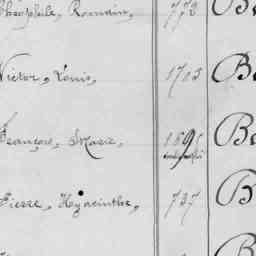 Théophile, Romain, 778 B
Victor, Louis, 1703 B
François, Marie, 1895 B
Pierre, Hyacinthe, 737 B
B